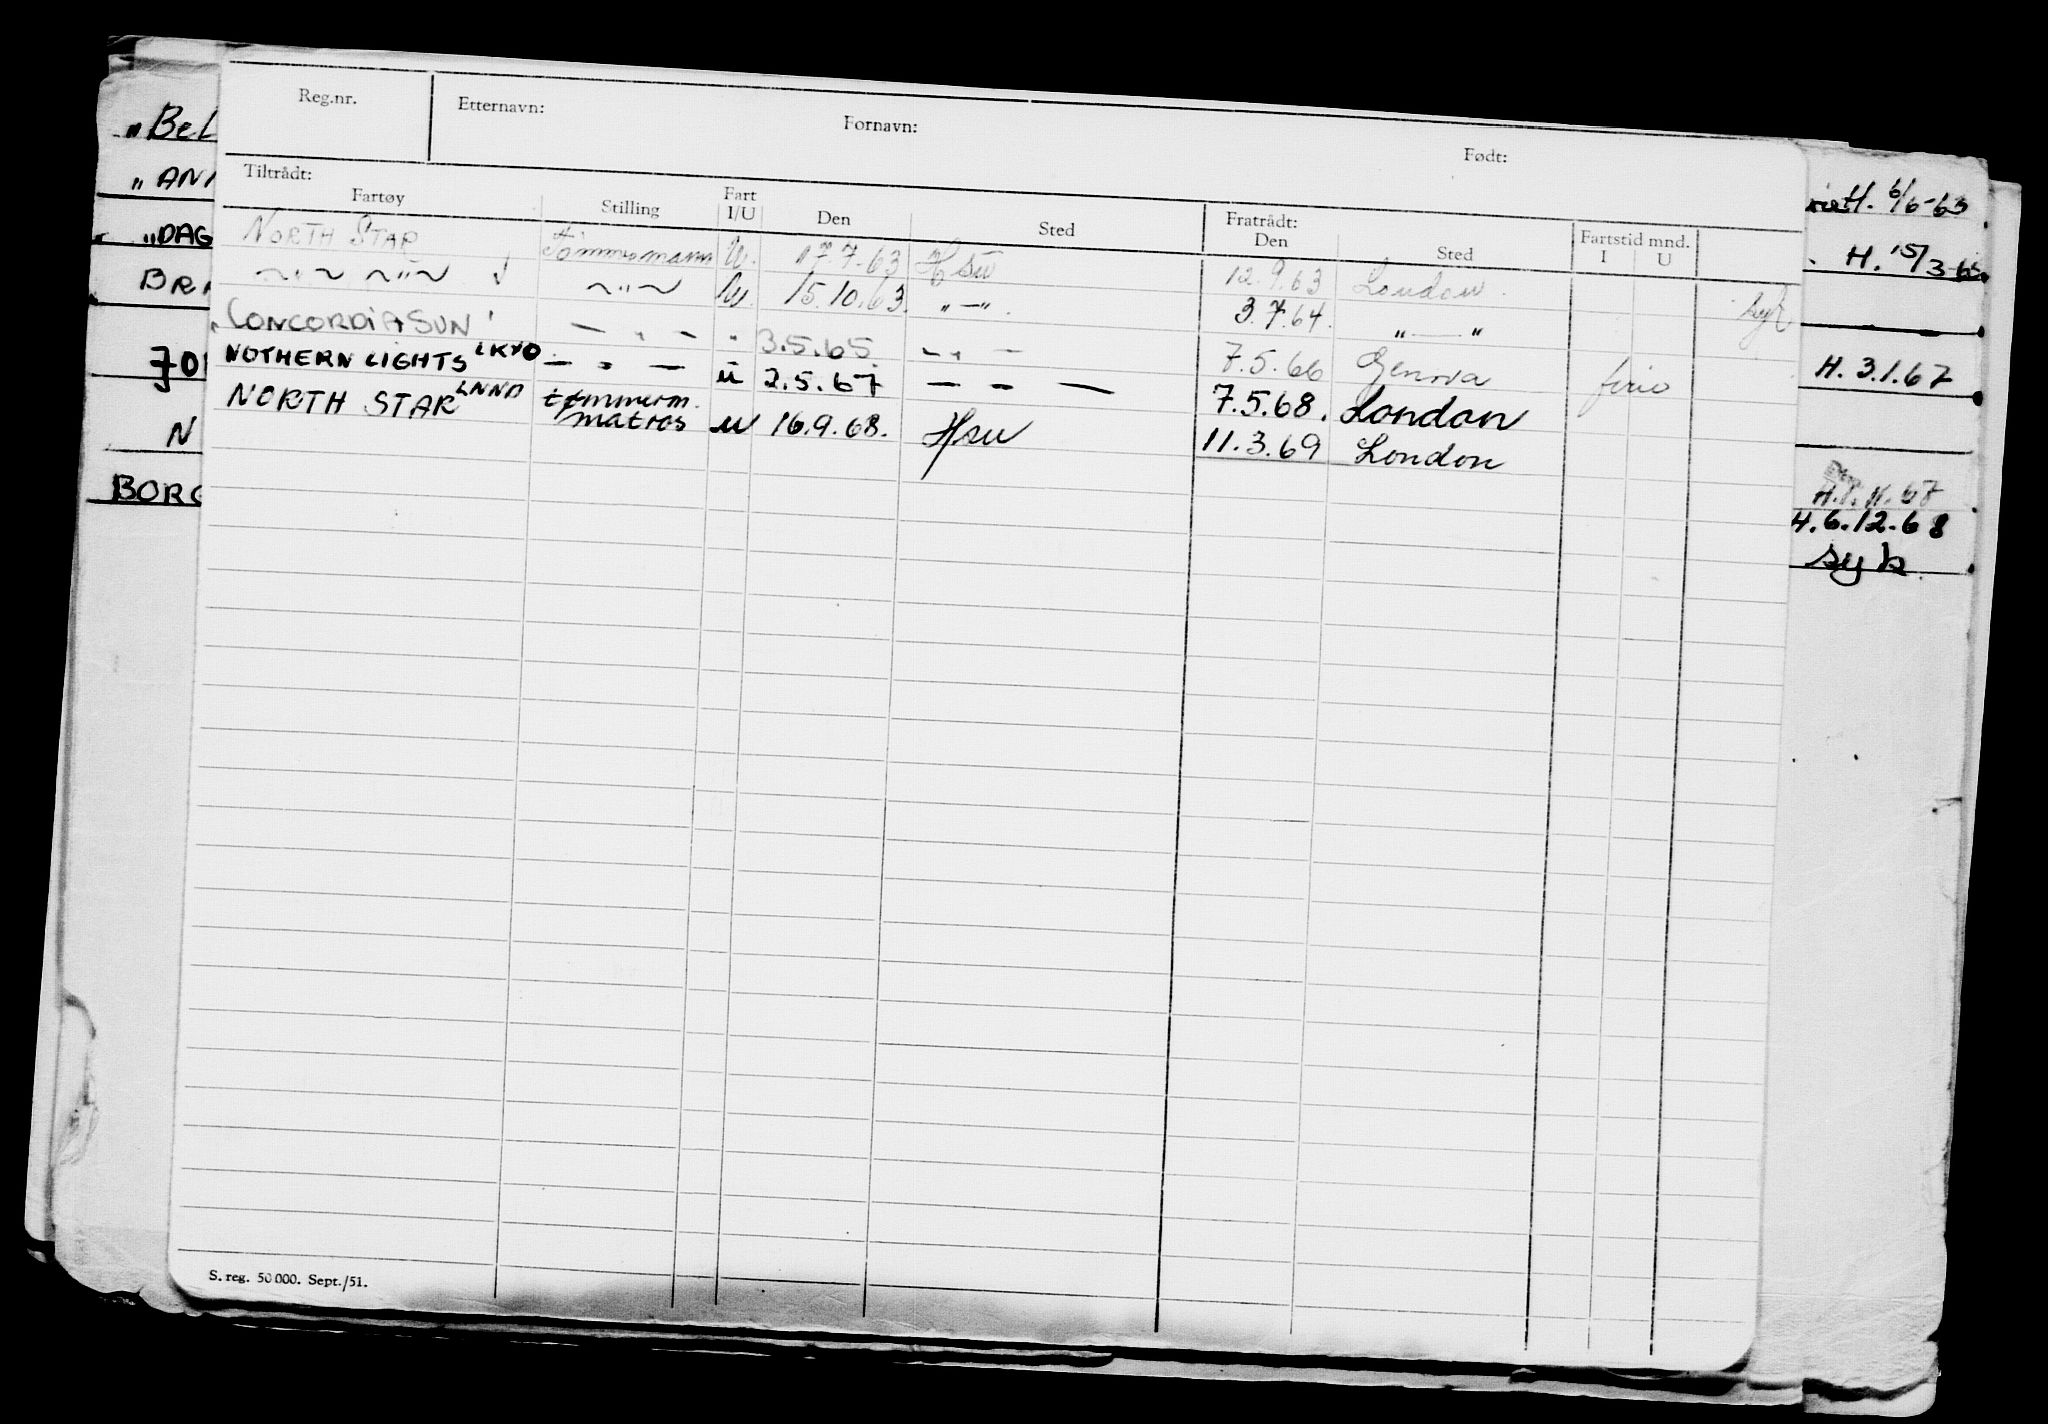 Reg.nr. Etternavn: Fornavn: Født:
Tiltrådt: Fratrådt: Fartstid mnd.
Fartøy Stilling Fart I/U Den Sted Den Sted I U
NORTH STAR Tömmermann U. 17.7.63 Hsu 12.9.63 London syk
~"~ ~"~ ~"~ U. 15.10.63. "—". 3.7.64. "—"
"CONCORDIA SUN" — " — " 3.5.65 — " — 7.5.66 Genova ferie
NOTHERN LIGHTS LKYO — " — u 2.5.67 — " — 7.5.68. London
NORTH STAR LNNA tømmerm. matros u 16.9.68. Hsu 11.3.69 London
S. reg. 50 000. Sept./51.
"BeL
"ANN
"DAG
BRA
JO
N
BORG
H. 6/6-63
H. 15/3-65
H. 3.1.67
H. 6.12.68
syk